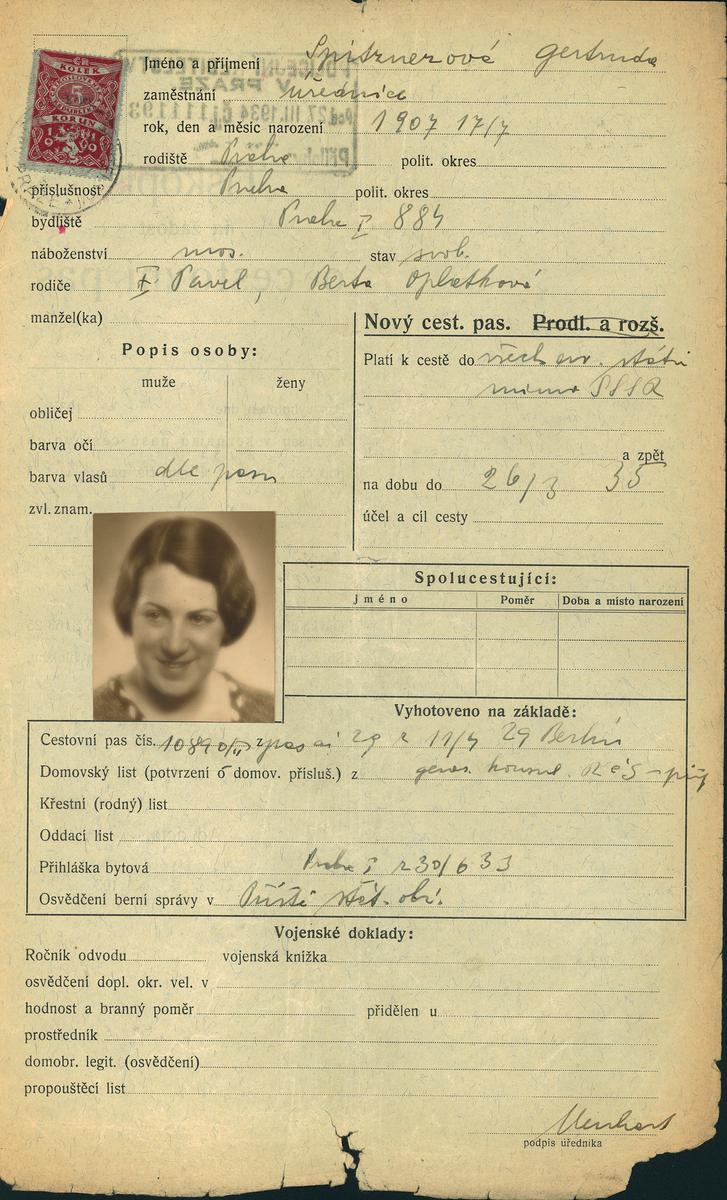 ČR
KOLEK
5
KORUN
Jméno a příjmení Spitznerová Gertruda
zaměstnání úřednice
rok, den a měsíc narození 1907 17/7
rodiště Praha polit. okres
příslušnost Praha polit. okres
bydliště Praha I 884
náboženství mos. stav svob.
rodiče Pavel, Berta Oplatková
manžel(ka)
Nový cest. pas. Prodl. a rozš.
Popis osoby:
muže ženy
obličej
barva očí
barva vlasů dle pasu
zvl. znam.
Platí k cestě do všech evr. států
mimo SSSR
a zpět
na dobu do 26/3 35
účel a cíl cesty
Spolucestující:
jméno Poměr Doba a místo narození
Vyhotoveno na základě:
Cestovní pas čís. 10890/II 29 z 11/4 29 Berlín
Domovský list (potvrzení o domov. přísluš.) z
Křestní (rodný) list
Oddací list
Přihláška bytová Praha I z 30/6 33
Osvědčení berní správy v
Vojenské doklady:
Ročník odvodu vojenská knížka
osvědčení dopl. okr. vel. v
hodnost a branný poměr přidělen u
prostředník
domobr. legit. (osvědčení)
propouštěcí list
podpis úředníka